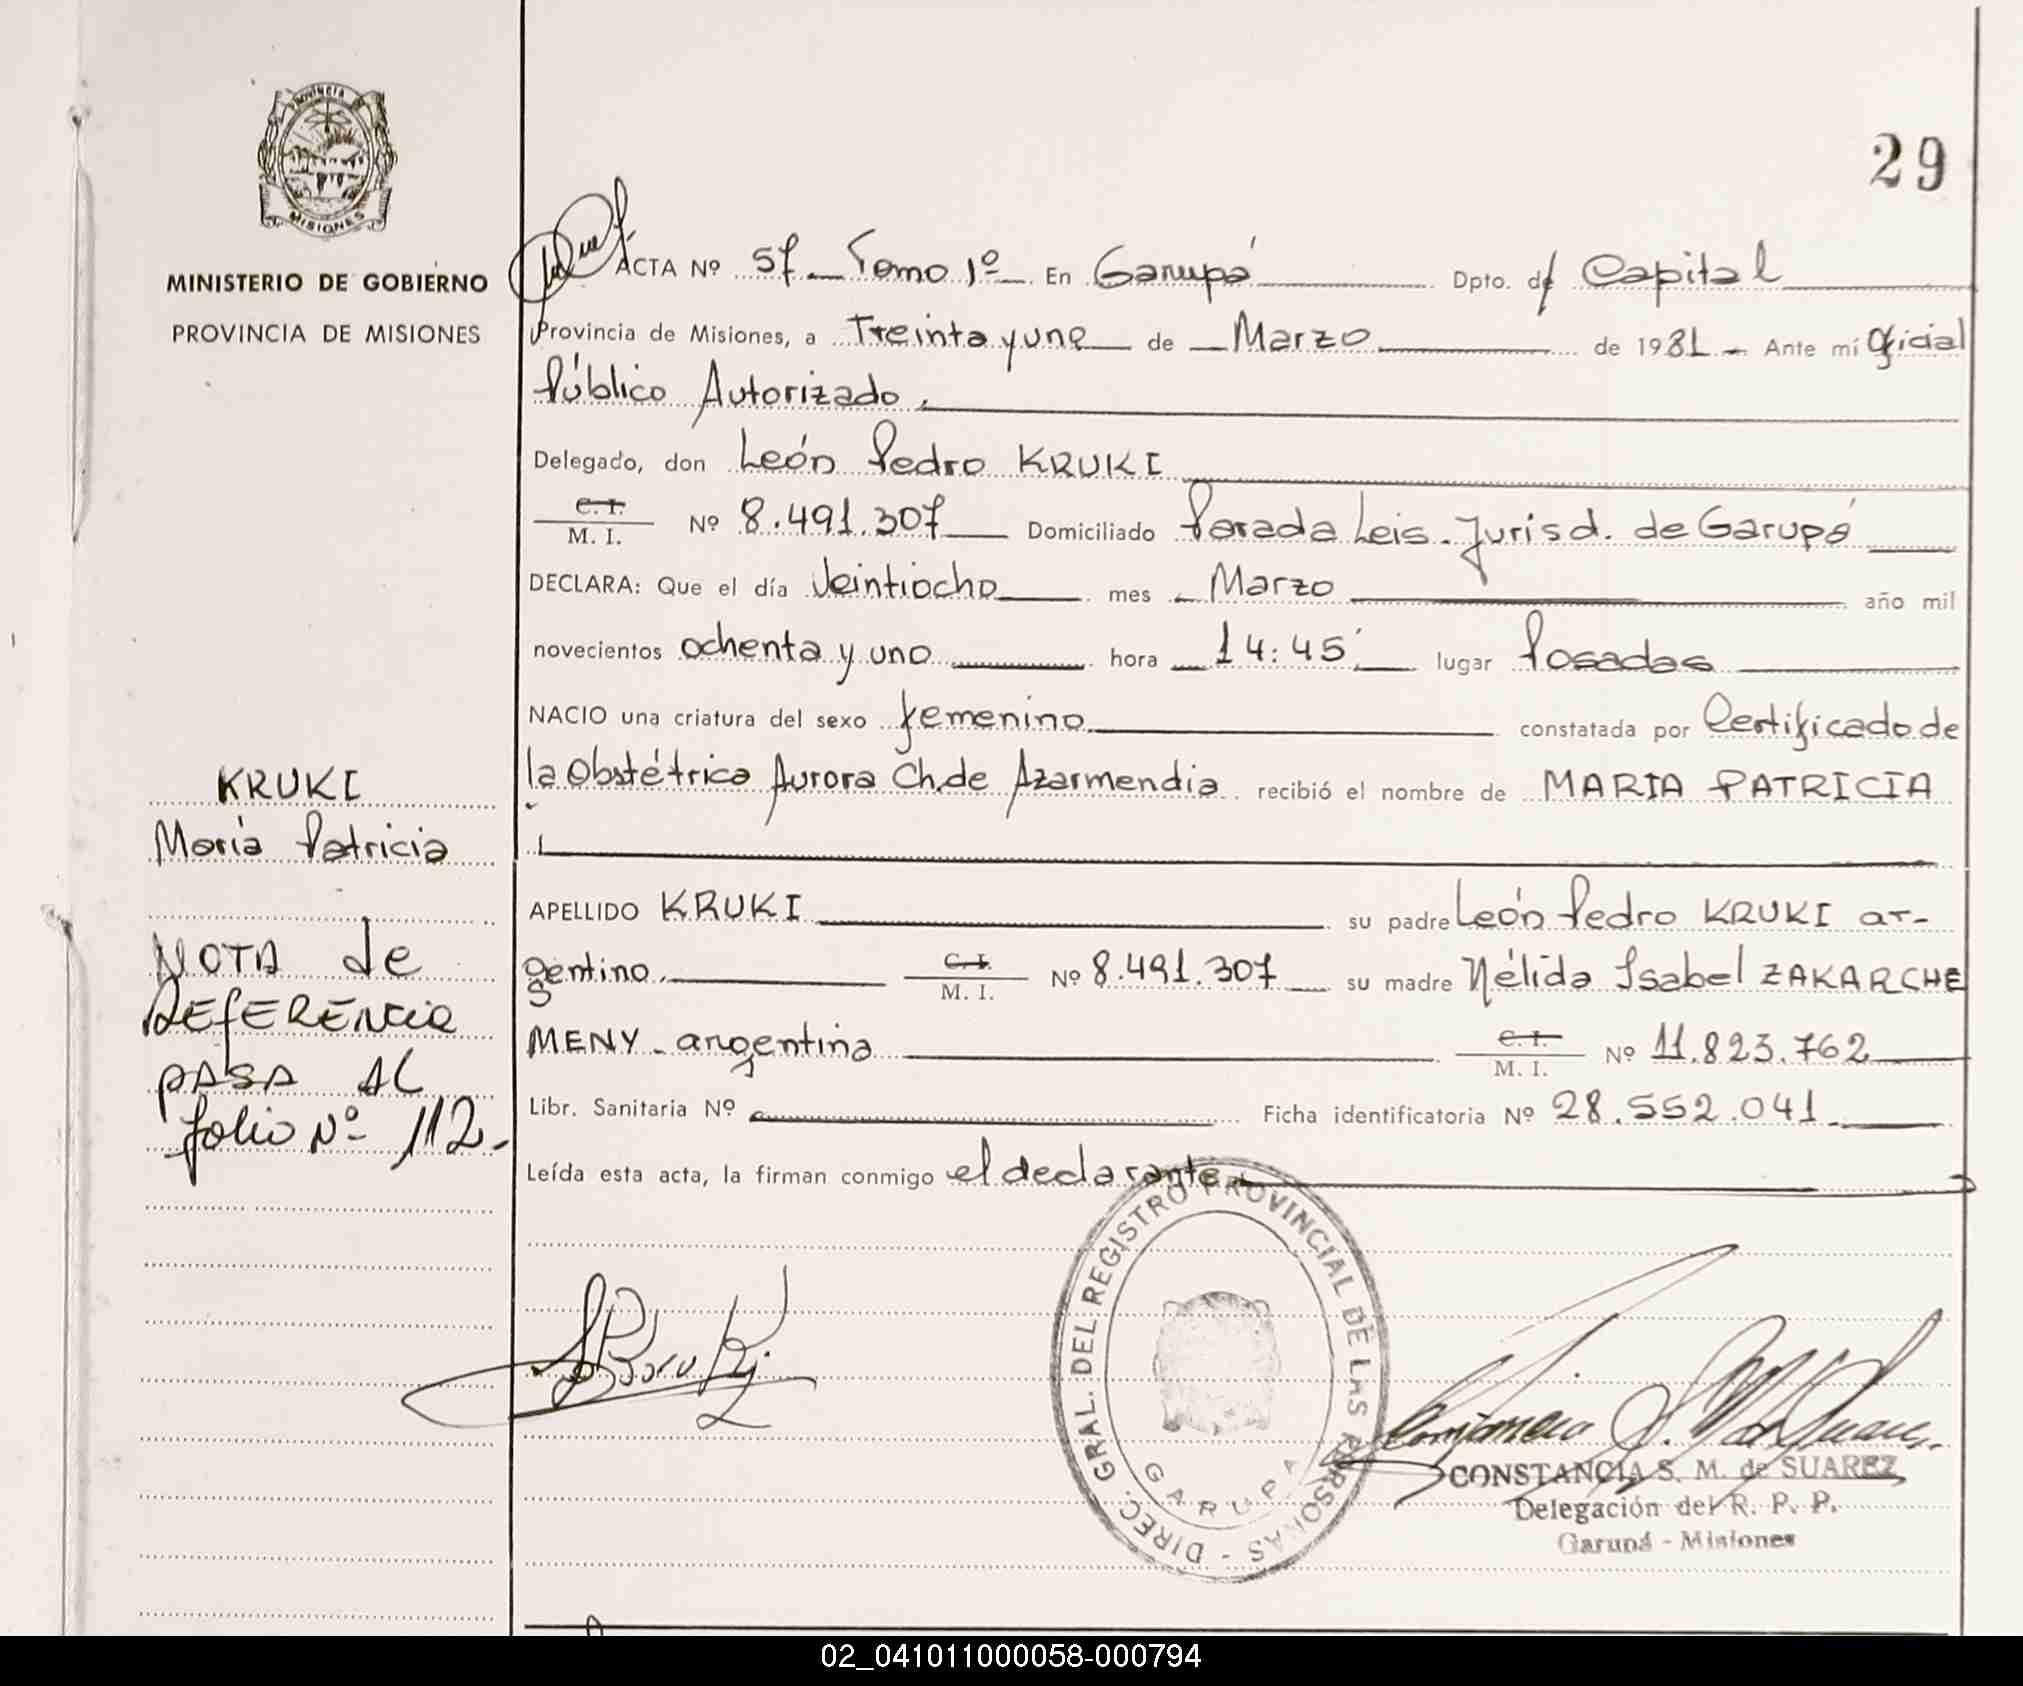 29
PROVINCIA
MISIONES
MINISTERIO DE GOBIERNO
PROVINCIA DE MISIONES
ACTA Nº 57 Tomo 1º En Garupá Dpto. de Capital
Provincia de Misiones, a Treinta y uno de Marzo de 1981 Ante mí Oficial
Público Autorizado.
Delegado, don León Pedro KRUKI
C. I.
M. I. Nº 8.491.307 Domiciliado Parada Leis. Jurisd. de Garupá
DECLARA: Que el día Veintiocho mes Marzo año mil
novecientos ochenta y uno hora 14:45 lugar Posadas
NACIO una criatura del sexo femenino constatada por Certificado de
la Obstétrica Aurora Ch. de Azarmendia recibió el nombre de MARIA PATRICIA
APELLIDO KRUKI su padre León Pedro KRUKI ar-
gentino. C. I. M. I. Nº 8.491.307 su madre Nélida Isabel ZAKARCHE
MENY - argentina C. I. M. I. Nº 11.823.762
Libr. Sanitaria Nº Ficha identificatoria Nº 28.552.041
Leída esta acta, la firman conmigo el declarante
KRUKI
María Patricia
NOTA de
REFERENCIA
PASA AL
folio Nº 112.-
DIREC. GRAL. DEL REGISTRO PROVINCIAL DE LAS PERSONAS -
GARUPA
CONSTANCIA S. M. de SUAREZ
Delegación del R. P. P.
Garupá - Misiones
02_041011000058-000794